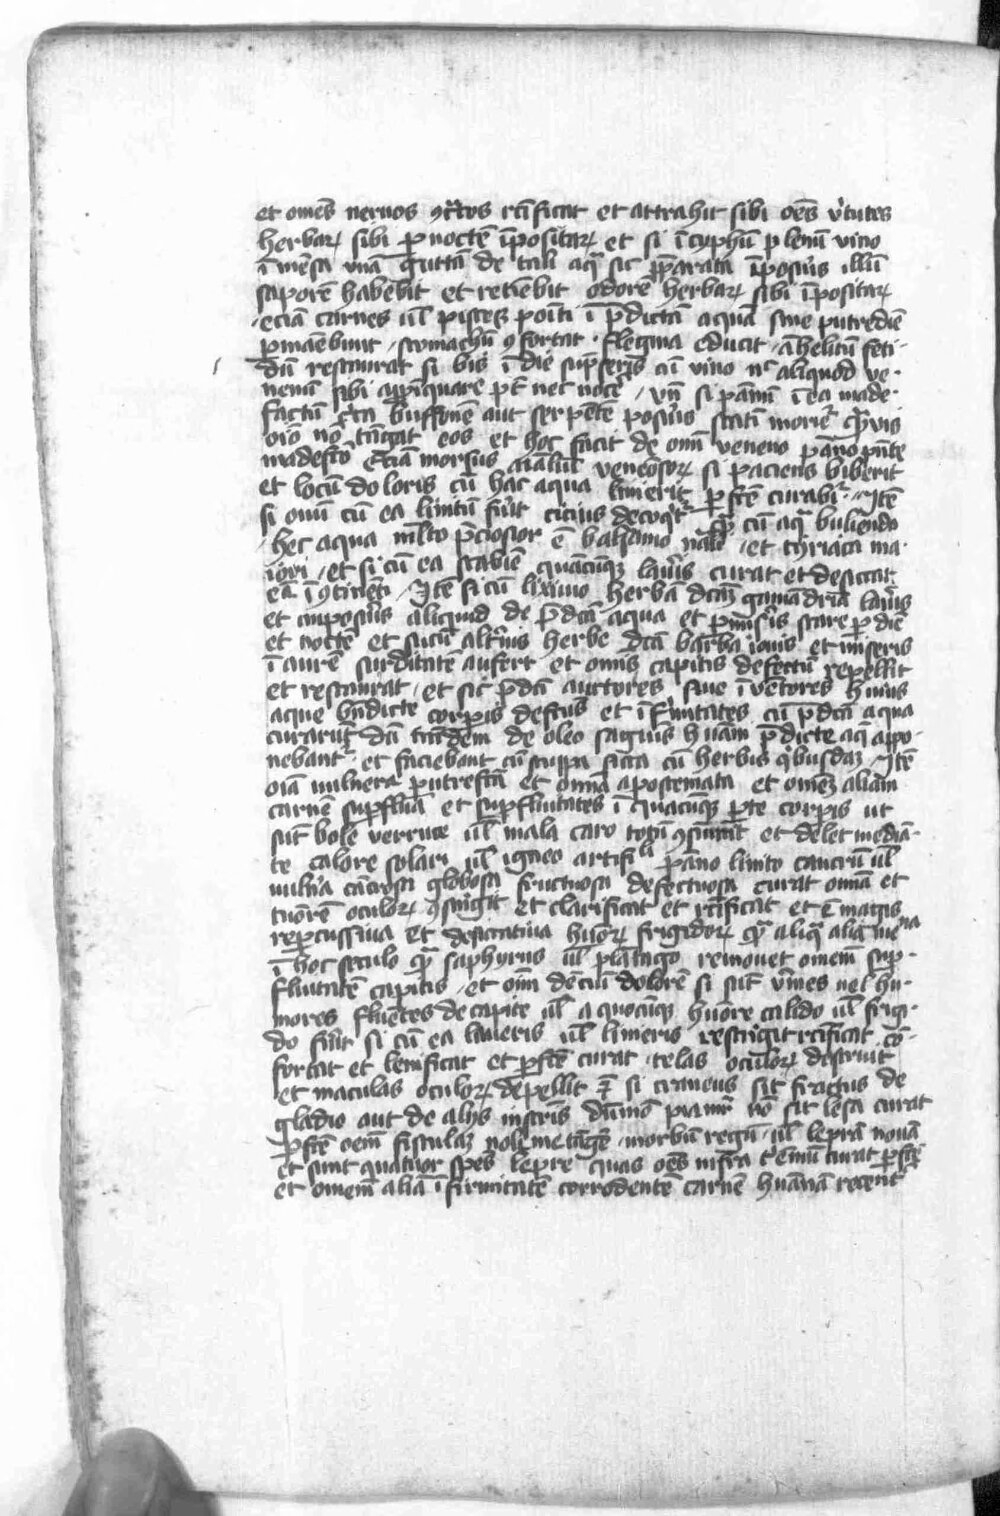 et omēs neruos ꝯt͛ctos rctificat et attrahit sibi oēs v͛tutes
herbaꝝ sibi ꝑ noctē īpositaꝝ et si ī cyphū plenū vino
ī mēsa vnā guttā de tali aqͣ sic p̄parata īposuis illū
saporē habebit et retīebit odorē herbaꝝ sibi īpositaꝝ
eciā carnes ul̄ pisces poīti ī p̄dictā aquā sine putredīe
ꝑmāebunt stomachū ꝯfortat flegma educit āhelitū feti-
dū restaurat si bis ī die sūpseris cū vino nc̄ aliquod ve-
nenū sibi appīquare pt̄ nec nocē vn̄ si pānū ī ea made-
factū cͬca buffonē aut serpētē posuis statī moriēt͛ qͣuis
oīo nō tāgat eos et hoc facit de omī veneno pāno
madefcō Eciā morsus aīaliū venenosoꝝ si paciens biberit
et locū doloris cū hac aqua linierit ꝑfcē curabit͛ Itē
si ouū cū ea linitū fu͛it cicius decoqͥt͛ qͣꝫ cū aqͣ buliendo
hec aqua ml̄to p̄ciosior ē balsamo nāli et tyriaca ma-
iori et si cū ea scabiē quācūqꝫ lau͛is curat et desiccat
eā ī ꝯtinēti Itē si cū lixiuio herbā dcām gamādriā lau͛is
et imposuis aliquid de p̄dcā aqua et ꝑmis͛is stare ꝑ diē
et noctē et sucū alt͛ius herbe dcā barba iouis et miseris
ī aurē surditatē aufert et omīs capitis defectū repellit
et restaurat et sic p̄dcī auctores siue īuētores huius
aque bn̄dicte corporis defcūs et īfirmitates cū p̄dcā aqua
curarūt dū tādem de oleo saguīs huāni p̄dicte aqͣ appo-
nebant͛ et faciebant cū stuppa sicca cū herbis qͥbusdā Itē
oīa vulnera putrefcā et omīa apostemata et omēꝫ aliam
carnē suꝑfluā et suꝑfluitates ī quacūqꝫ ꝑte corpis ut
sūt bole verruce ul̄ mala caro totū ꝯsumit et delet mediā-
te calore solari ul̄ igneo artifiali pāno linito cancrū ul̄
vuln͛a cācrosa globosa fructuosa defectuosa curat omīa et
tuōrē oculoꝝ ꝯstrīgit et clarificat et rctificat et ē magis
reꝑcussiua et desiccatiua huōꝝ frigidoꝝ qͣꝫ aliqͣ alia meīa
ī hoc seculo qͣꝫ saphyrus ul̄ plātago remouet omem suꝑ-
fluitatē capitis et omī dēciū dolorē si sūt v͛mes uel hu-
mores fluētes de capite ul̄ a quocūqꝫ huōre calido ul̄ frigi-
do fu͛it si cū ea laueris ul̄ limeris restrīgit rctificat cō-
fortat et lenificat et ꝑfcē curat telas oculoꝝ destruit
et maculas oculoꝝ depellit Itē si craneus sit fractus de
gladio aut de aliis instris dūmō piamͬ nō sit lesa curat
ꝑfcē oēm fistulaꝫ nolimetāgē morbū regiū ul̄ leprā nouā
et sunt quatuor spēs lepre quas oēs infra curat ꝑfcē
et omem aliā īfirmitatē corrodentē carnē huānā recent